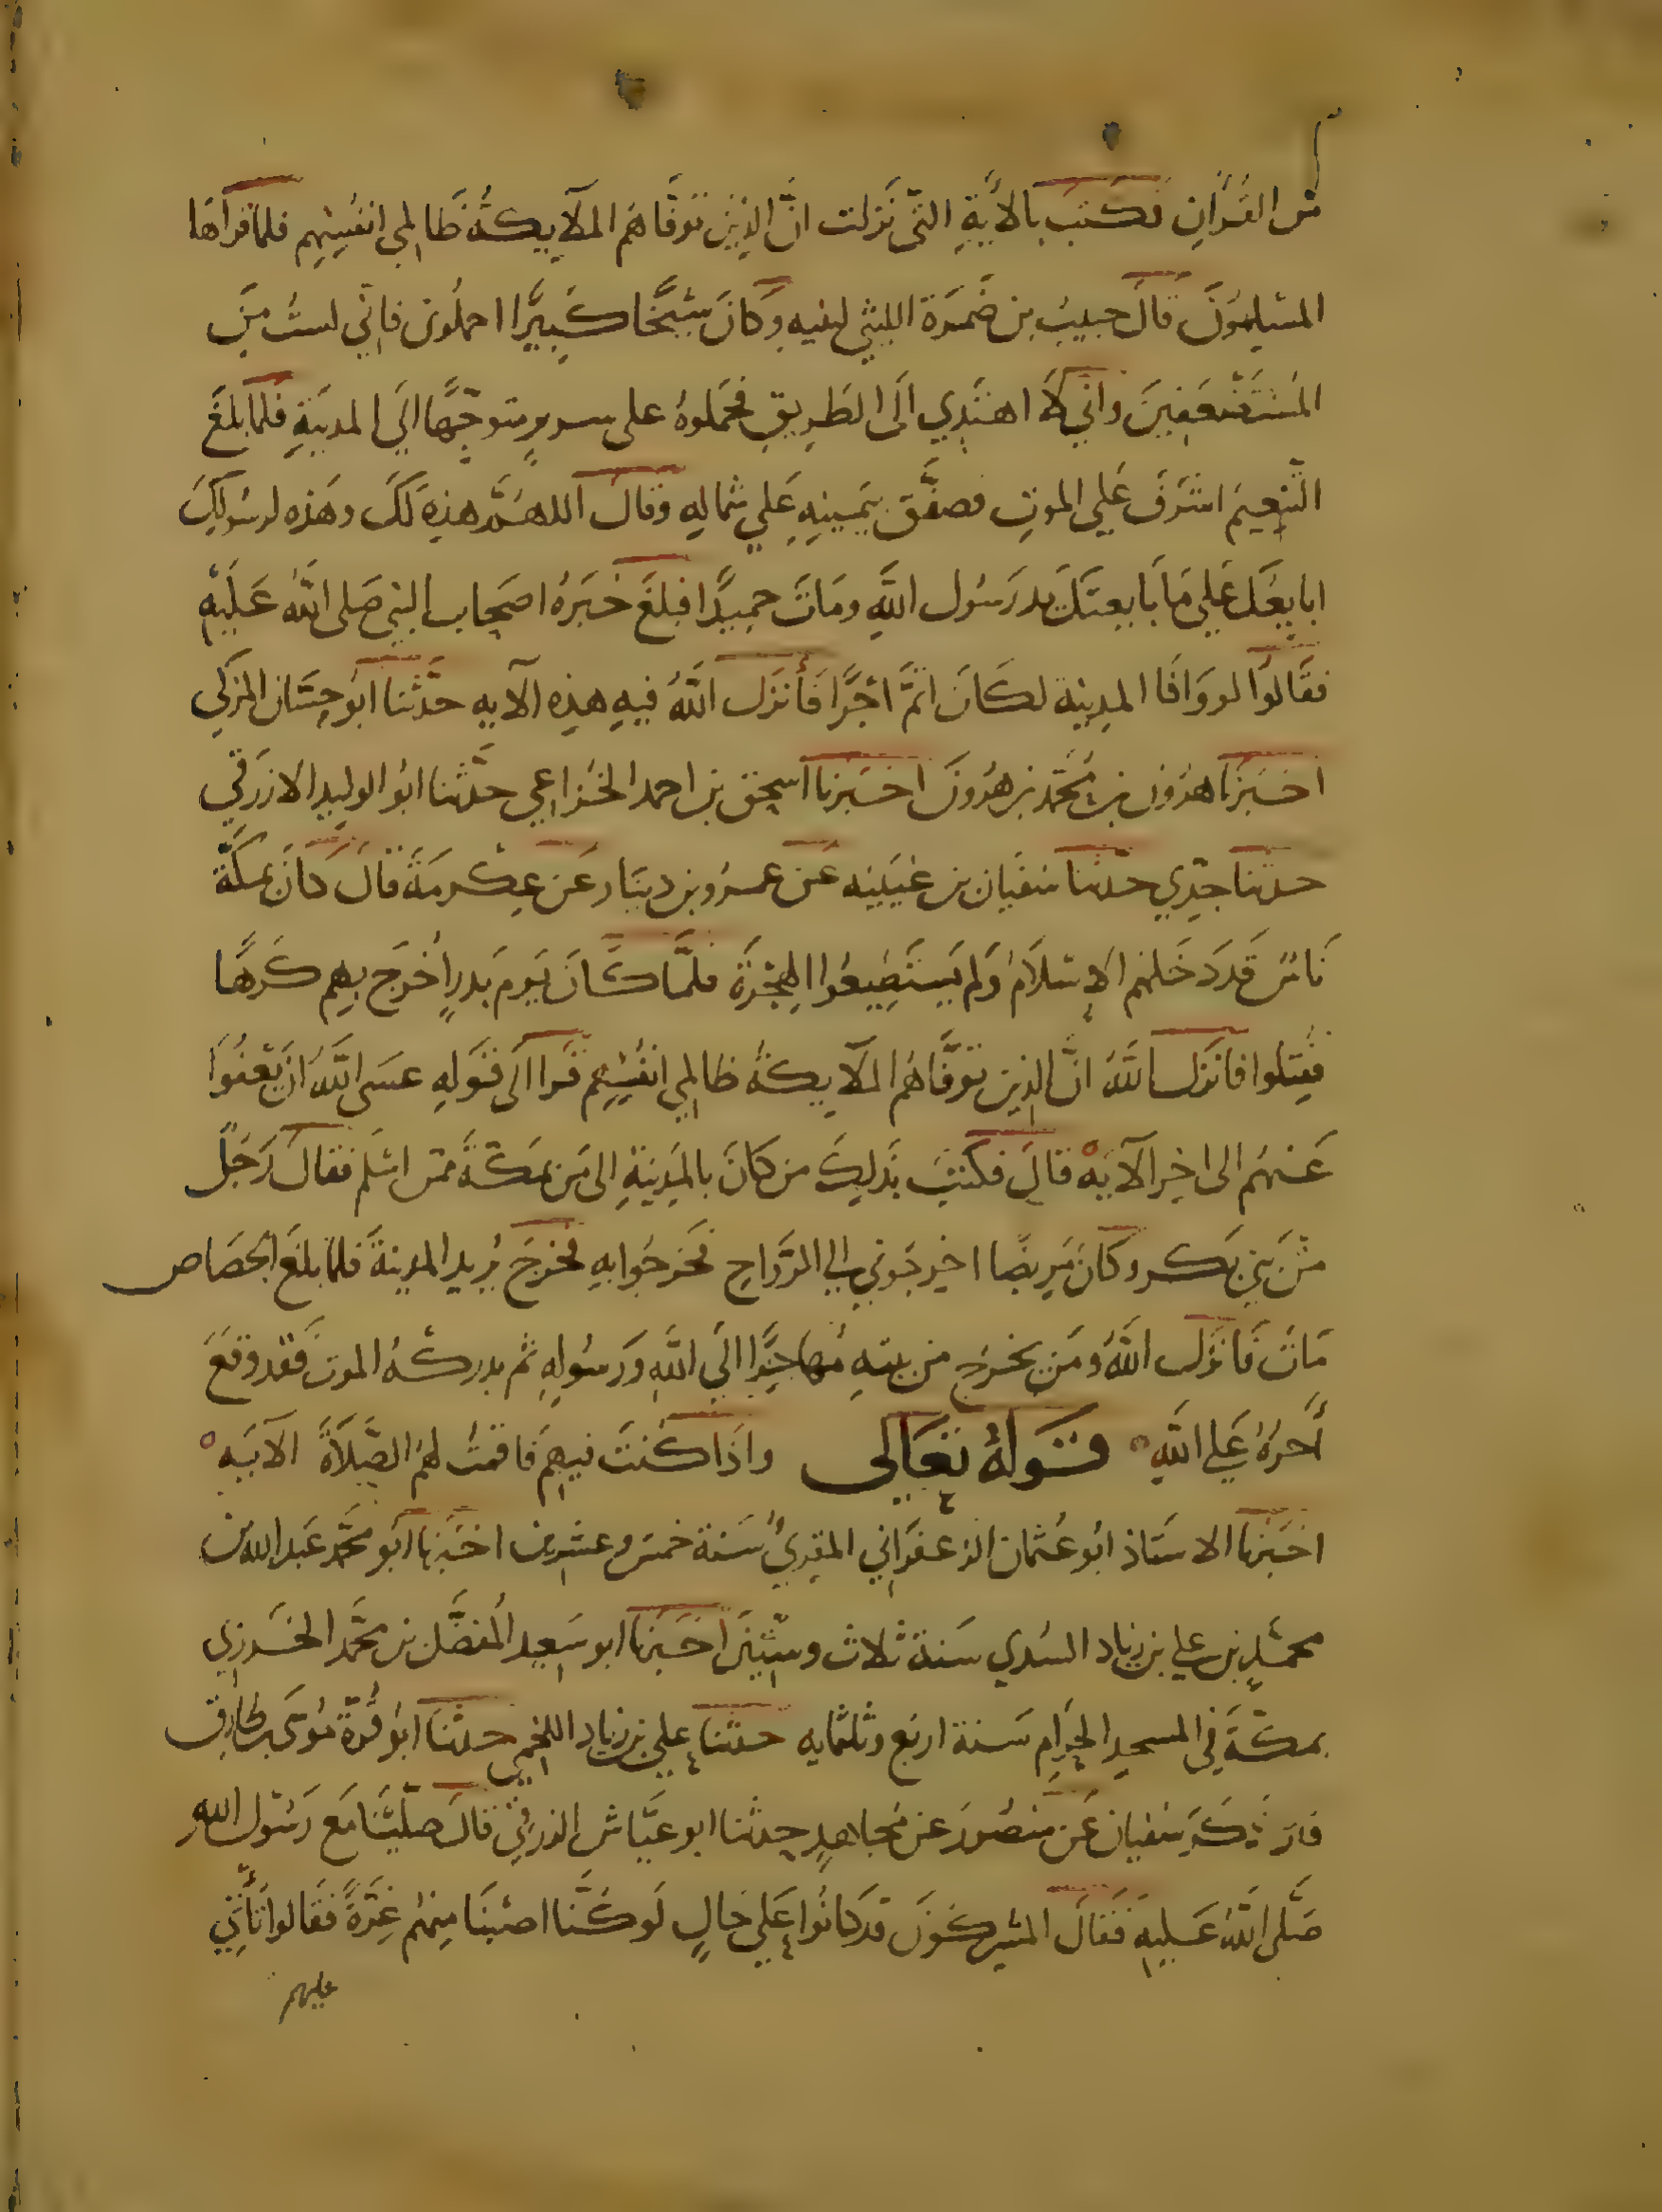 من القُرآنِ فكتبَ بالآيةِ التي نَزلت انَّ الذين توفَّاهُم الملآيكةُ ظَالمي انفُسِهِم فلما قراَهَا
المسْلِمُونَ قالَ حبيبُ بن ضَمرَة الليثي لبنيه وكانَ شيخًا كبيرًا احملُوني فاِنّي لستُ مِنَ
المُستضْعَفينَ واني لا اهتدِي الَى الطَرِيقِ فحَملوهُ على سريرٍ متوجِّهًا اليَ المدينَةِ فلما بلغَ
التنعيم اشرَفَ عَلي الموتِ فصفَّق يَمينِهِ عَلي شمالِهِ وقالَ اللهُمَّ هذِهِ لَكَ وهَذِه لرسُولِكَ
ابايعُكَ عَلي مَا بَايعتكَ يد رَسُول اللَّهِ ومَاتَ حميدًا فبلغَ خبَرُهُ اصحاب النبي صَلى اللهُ عَليْهِ
فقَالوُا لو وَافَا المدِينة لكَانَ اتمَّ اجْرًا فأنزَل اللَّهُ فيهِ هذِهِ الآيه حدَّثنا ابُو حسَّان المزكي
اخبَرنا هرُون بن مُحَّمد بن هرُونَ اخبَرنا اسحق بن احمد الخُزاعي حدَّثنا ابُو الوليد الازرَقي
حدثنا جدِّي حدَّثنا سفيَان بن عُيَيْنِه عَن عمرُو بن دينَار عَن عِكْرمَةَ قالَ كانَ بمكَّةَ
نَاسٌ قَد دَخَلهُم الاِسْلَامُ وَلم يَستَطِيعُوا الهِجْرَةَ فلمَّا كَانَ يَوم بَدرٍ اُخرَج بهِم كَرهًا
فقُتِلوا فانزَل اللَّهُ انَّ الذِين توفَّاهُم الملآيكةُ ظالمي انفُسِهِم قَرا الى قَولِهِ عسَى اللَّهُ ان يَعْفُوَا
عَنهُم الى اخِر الآيَه قالَ فكتبَ بذَلِكَ من كَانَ بالمَدِينةِ الى مَن بمكَّةَ ممّن اسْلَم فقالَ رَجُلٌ
مِّنْ بَني بَكر وكَانَ مَرِيضًا اخرِجُوني الي الرَّوَاحِ فخَرجُوا بهِ فخرَجَ يُريد المدينةَ فلمَا بلغَ الحصَاص
مَاتَ فَانزَل اللَّهُ ومَن يخرُج من بيتهِ مُهاجِرًا اليَ اللَّهِ ورَسُولِهِ ثم يدركهُ الموتُ فَقد وقَعَ
أَجرُهُ عَلي اللَّهِ قَولهُ تعَالى واذَا كنتَ فيهِم فاقمتَ لهمُ الصَّلاةَ الآيَه
اخبَرنا الاستَاذ ابُو عُثمان الزعفَراني المقريُّ سَنة خمسَ وعشرين اخبَرنا ابُو محَّمد عَبد الله بن
محمّدِ بن علي بن زيَاد السُدي سَنة ثلاث وسِتّينَ اخبَرنا ابو سَعيد المُفضَّل بن محَّمد الجَزري
بمكّةَ في المسجِد الحرَام سَنة اربَع وثلثمايه حدثنا علي بن زيَاد اللخمي حدثنا ابُو قُرَّة مُوسَى بن طارِق
قالَ ذكَرَ سُفيَان عَن مَنصُورَ عَن مُجاهِدٍ حدثنا ابو عيَّاش الزرقي قالَ صلَّيْنَا مَع رَسُول الله
صَلَّى اللَّهُ عَليهِ فَقالَ المُشركُونَ قد كَانُوا عَلي حَالٍ لَو كنَّا اصَبْنَا مِنهُم غِرَّةً فقَالوا تَأتِي
عليهم